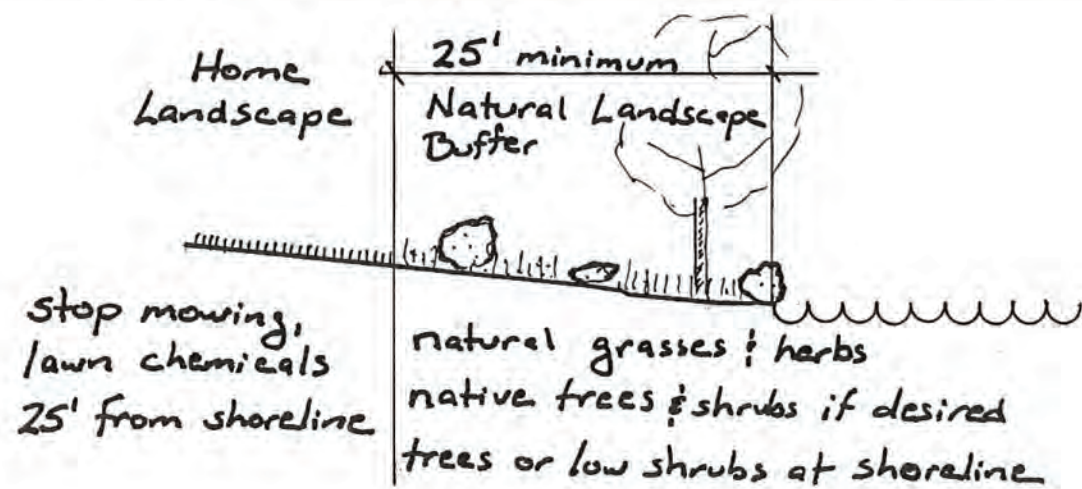 Home
Landscape
25' minimum
Natural Landscape
Buffer
stop mowing,
lawn chemicals
25' from shoreline
natural grasses & herbs
native trees & shrubs if desired
trees or low shrubs at shoreline